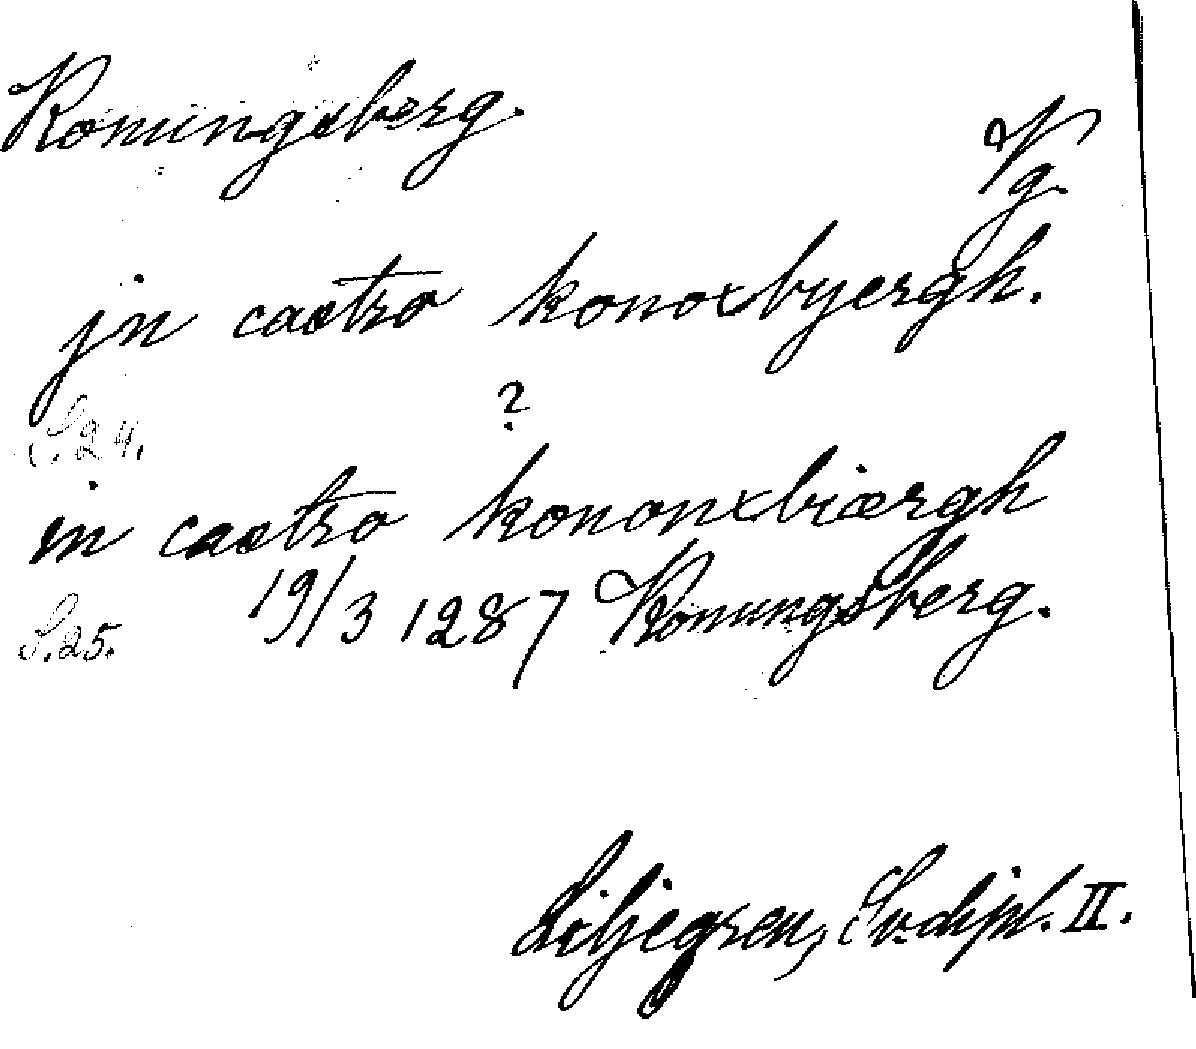 Konungsberg.
Vg.
jn castro konoxbyergh.
S. 24.
?
in castro kononxbiærgh
S. 25. 19/3 1287 Konungsberg.
Liljegren, Sv. dipl. II.